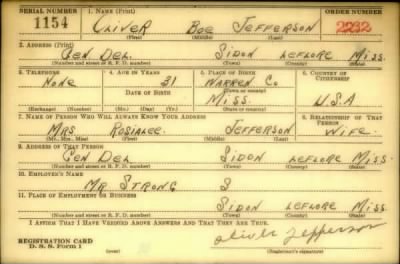 SERIAL NUMBER 1. NAME (Print) ORDER NUMBER
1154 OLIVER BOE JEFFERSON 2232
(First) (Middle) (Last)
2. ADDRESS (Print)
GEN DEL. SIDON LEFLORE MISS.
(Number and street or R. F. D. number) (Town) (County) (State)
3. TELEPHONE 4. AGE IN YEARS 5. PLACE OF BIRTH 6. COUNTRY OF CITIZENSHIP
NONE 31 WARREN CO
DATE OF BIRTH (Town or county)
MISS. U.S.A
(Exchange) (Number) (Mo.) (Day) (Yr.) (State or country)
7. NAME OF PERSON WHO WILL ALWAYS KNOW YOUR ADDRESS 8. RELATIONSHIP OF THAT PERSON
MRS ROSIALEE. JEFFERSON WIFE.
(Mr., Mrs., Miss) (First) (Middle) (Last)
9. ADDRESS OF THAT PERSON
GEN DEL SIDON LEFLORE MISS.
(Number and street or R. F. D. number) (Town) (County) (State)
10. EMPLOYER'S NAME
MR STRONG S
11. PLACE OF EMPLOYMENT OR BUSINESS
SIDON LEFLORE MISS.
(Number and street or R. F. D. number) (Town) (County) (State)
I AFFIRM THAT I HAVE VERIFIED ABOVE ANSWERS AND THAT THEY ARE TRUE.
REGISTRATION CARD
D. S. S. Form 1 Oliver Jefferson
(Registrant's signature)